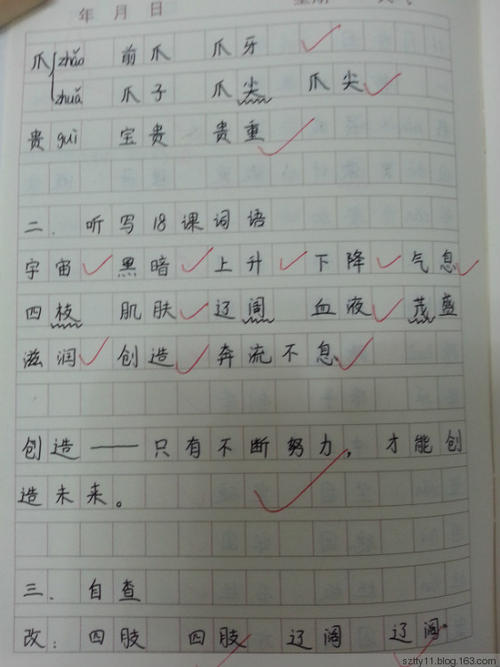 年 月 日
爪 zhǎo 前爪 爪牙
zhuǎ 爪子 爪尖 爪尖
贵 guì 宝贵 贵重
二. 听写18课词语
宇宙 黑暗 上升 下降 气息
四枝 肌肤 辽阔 血液 茂盛
滋润 创造 奔流不息
创造——只有不断努力,才能创
造未来。
三. 自查
改: 四肢 四肢 辽阔 辽阔
szlfy11.blog.163.com